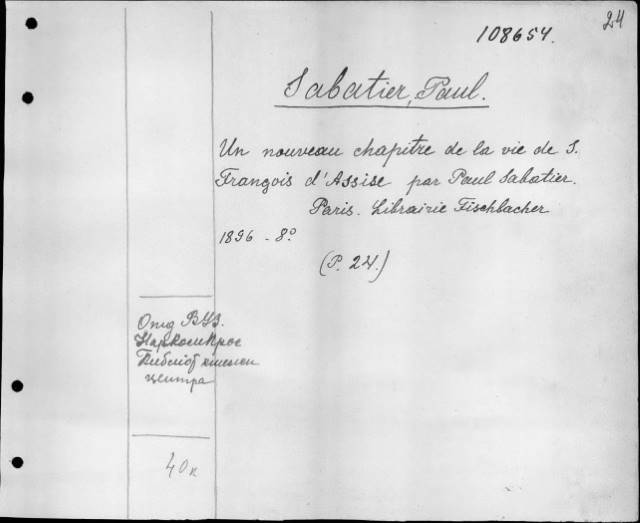 24
108654.
Sabatier, Paul.
Un nouveau chapitre de la vie de S.
François d'Assise par Paul Sabatier.
Paris. Librairie Fischbacher
1896 - 8º
(P. 24.)
Отд ВУЗ.
НаркомПрос
Библіот
центра
40к